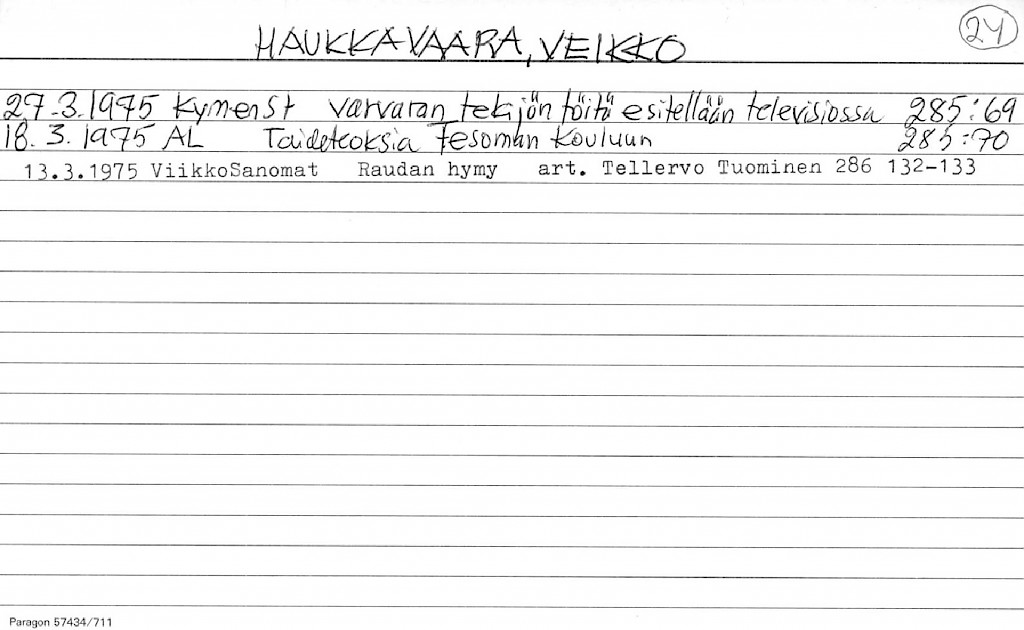 HAUKKAVAARA, VEIKKO
24
27.3.1975 KymenSt varvaran tekijön töitä esitellään televisiossa 285:69
18.3.1975 AL Taideteoksia Tesoman Kouluun 285:70
13.3.1975 ViikkoSanomat Raudan hymy art. Tellervo Tuominen 286 132-133
Paragon 57434/711